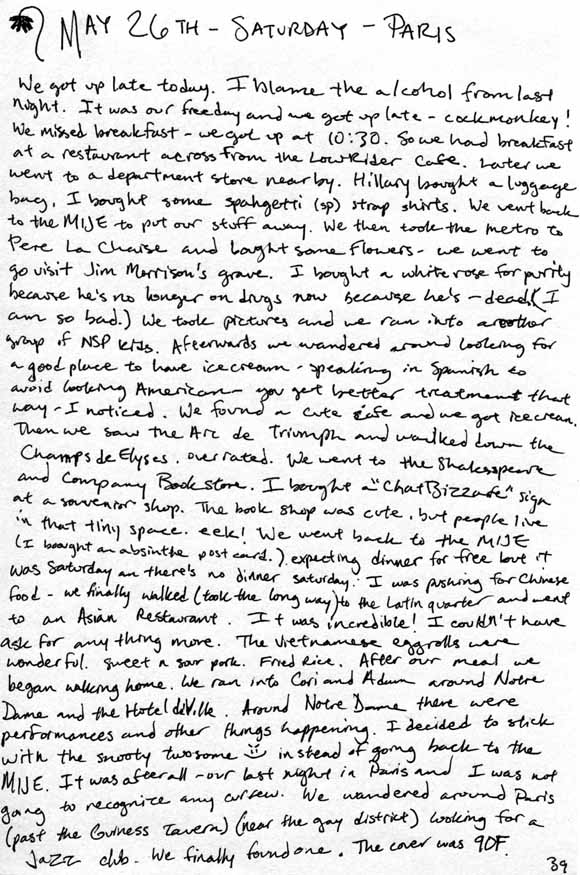 May 26th - Saturday - Paris
We got up late today. I blame the alcohol from last
night. It was our freeday and we got up late - cockmonkey!
We missed breakfast - we got up at 10:30. So we had breakfast
at a restaurant across from the LowRider Cafe. Later we
went to a department store nearby. Hillary bought a luggage
bag, I bought some spahgetti (sp) strap shirts. We went back
to the MIJE to put our stuff away. We then took the metro to
Pere La Chaise and bought some flowers - we went to
go visit Jim Morrison's grave. I bought a white rose for purity
because he's no longer on drugs now because he's - dead. (I
am so bad.) We took pictures and we ran into another
group of NSP kids. Afterwards we wandered around looking for
a good place to have icecream - speaking in Spanish to
avoid looking American - you get better treatment that
way - I noticed. We found a cute cafe and we got icecream.
Then we saw the Arc de Triumph and walked down the
Champs de Elyses. overrated. We went to the Shakesspeare
and Company Bookstore. I bought a "Chat Bizzare" sign
at a souvenior shop. The book shop was cute. but people live
in that tiny space. eek! We went back to the MIJE
(I bought an absinthe post card.) expecting dinner for free but it
was Saturday an there's no dinner saturday. I was pushing for Chinese
food - we finally walked (took the long way) to the Latin quarter and went
to an Asian Restaurant. It was incredible! I couldn't have
ask for any thing more. The Vietnamese eggrolls were
wonderful. Sweet n sour pork. Fried Rice. After our meal we
began walking home. We ran into Cori and Adam around Notre
Dame and the Hotel deVille. Around Notre Dame there were
performances and other things happening. I decided to stick
with the snooty twosome instead of going back to the
MIJE. It was after all - our last night in Paris and I was not
going to recognize any curfew. We wandered around Paris
(past the Guiness Tavern) (near the gay district) looking for a
Jazz club. We finally found one. The cover was 90F.
39